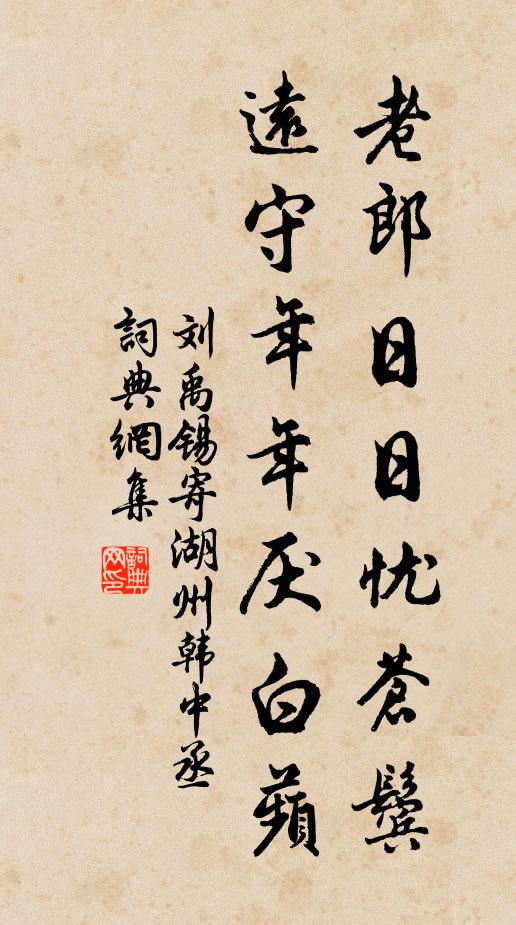 老郎日日忧苍鬓
遠守年年厌白蘋
刘禹锡寄湖州韩中丞
詞典網集
詞典网印